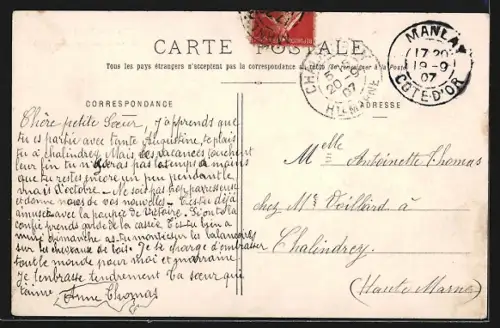 CARTE POSTALE
Tous les pays étrangers n'acceptent pas la correspondance au recto
CORRESPONDANCE
ADRESSE
17 20
19-9
07
COTE D'OR
20-9
07
Hte MARNE
Chère petite Sœur, j'apprends que
tu es partie avec tante Augustine, te plais
tu à Chalindrey. Mais les vacances touchent
leur fin tu n'auras pas le temps à moins
que tu restes encore un peu pendant le
mois d'octobre - Ne sois pas trop paresseuse
et donne nous de vos nouvelles - T'es tu déjà
amusée avec la poupée de Victoire. Si on te la
confie prends garde de la casser. T'es tu bien
dimanche as tu monté sur les balançoires
sur les chevaux de bois. Je te charge d'embrasser
tout le monde pour moi et marraine
je t'embrasse tendrement Ta sœur qui
t'aime Anne Thomas
Melle Antoinette Thomas
chez Mr Voillard à
Chalindrey
(Haute Marne)